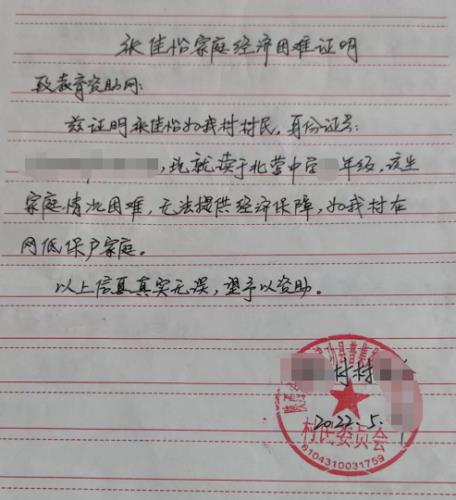 张佳怡家庭经济困难证明
致教育资助网:
兹证明张佳怡如我村村民,身份证号:
,现就读于北营中学年级,该生
家庭情况困难,无法提供经济保障,如我村在
网低保户家庭。
以上信息真实无误,望予以资助。
功县普集
村村
2022.5.
村民委员会
6104310031759